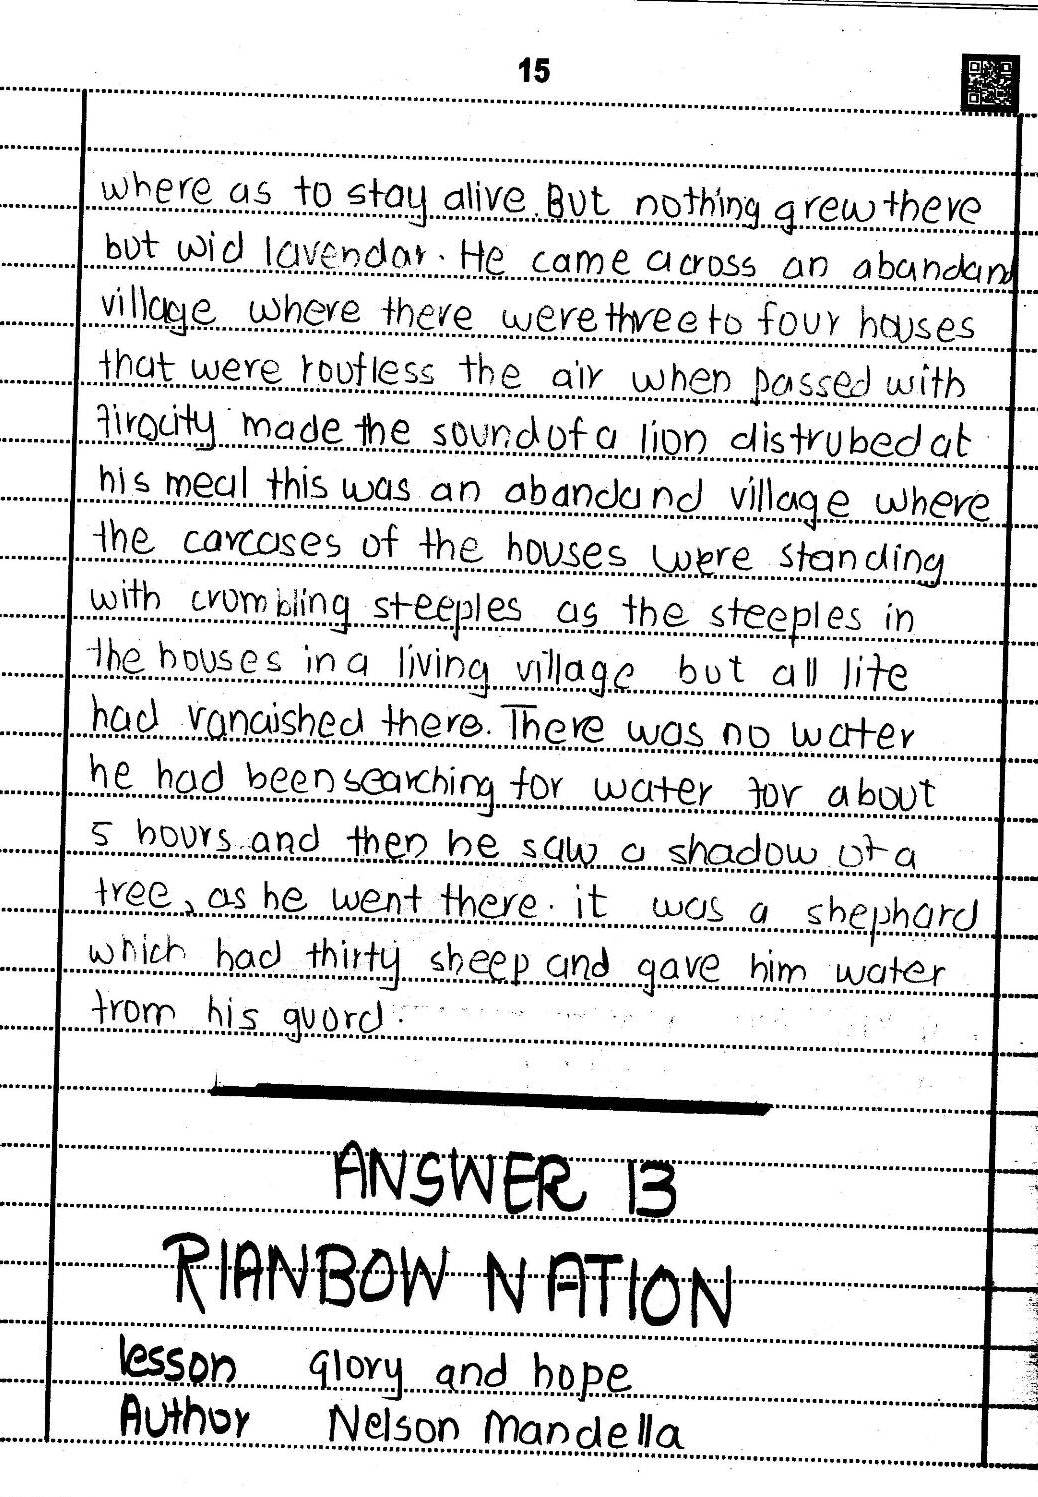 15
where as to stay alive. But nothing grew there
but wid lavendar. He came across an abandand
village where there were three to four houses
that were roufless the air when passed with
firocity made the sound of a lion distrubed at
his meal this was an abandand village where
the carcases of the houses were standing
with crumbling steeples as the steeples in
the houses in a living village but all life
had vanaished there. There was no water
he had been searching for water for about
5 hours and then he saw a shadow of a
tree, as he went there. it was a shephard
which had thirty sheep and gave him water
from his guord.
ANSWER 13
RIANBOW NATION
lesson glory and hope
Author Nelson Mandella